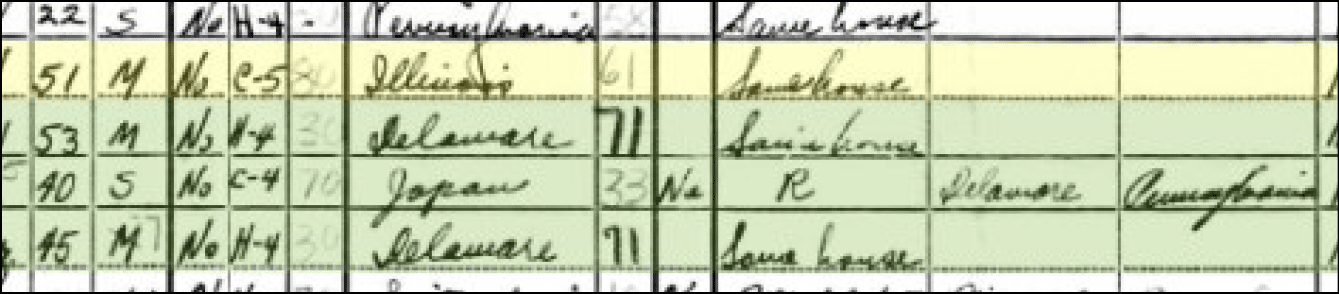 22 S No H-4 - Pennsylvania 58 Same house
51 M No C-5 30 Illinois 61 Same house
53 M No H-4 30 Delaware 71 Same house
40 S No C-4 70 Japan 33 No R Delaware Pennsylvania
45 M 7 No H-4 30 Delaware 71 Same house